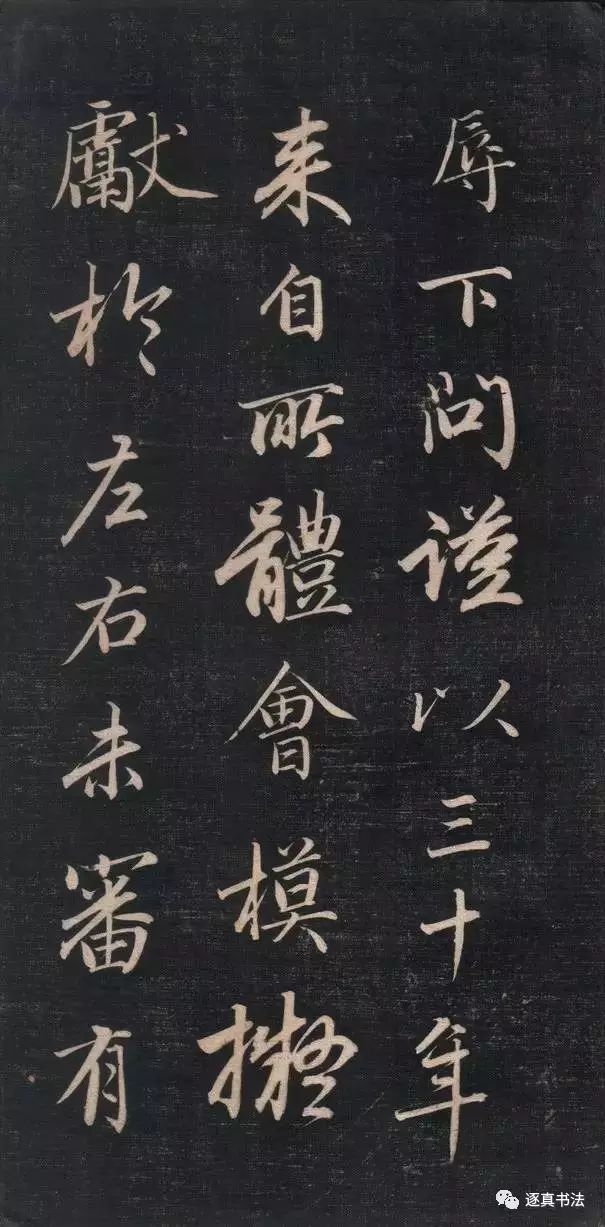 辱下問謹以三十年
来自所體會模擬
獻於左右未審有
逐真书法